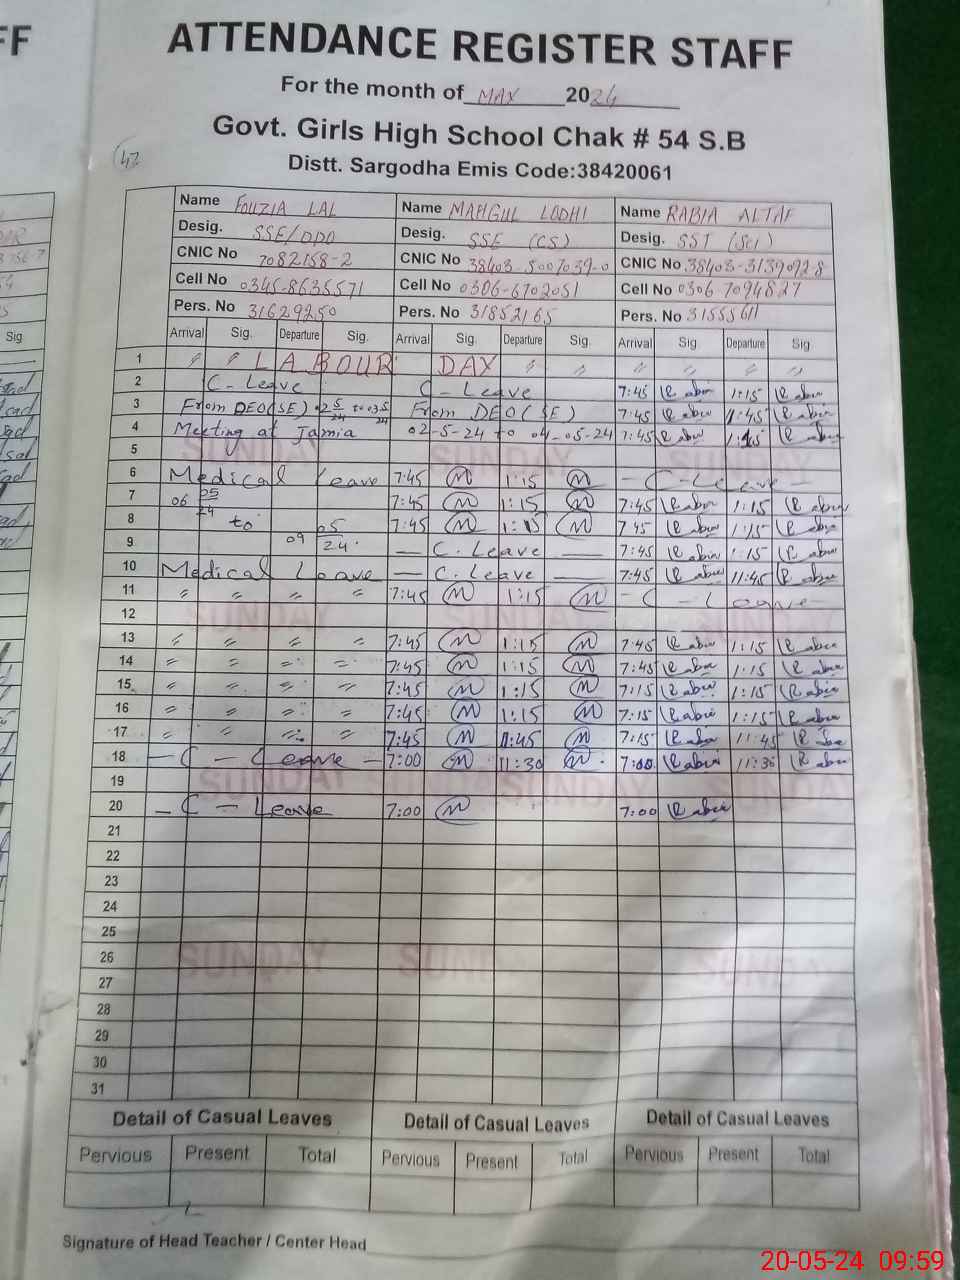 FF
ATTENDANCE REGISTER STAFF
For the month of MAY 2024
Govt. Girls High School Chak # 54 S.B
Distt. Sargodha Emis Code:38420061
42
Name FOUZIA LAL Name MAHGUL LODHI Name RABIA ALTAF
Desig. SSE/DDO Desig. SSE (CS) Desig. SST (Sci)
CNIC No 7082158-2 CNIC No 38403-5007039-0 CNIC No 38403-3139092-8
Cell No 0345-8635571 Cell No 0306-6702051 Cell No 0306 7094827
Pers. No 31629250 Pers. No 31852165 Pers. No 31555611
Sig Arrival Sig. Departure Sig. Arrival Sig. Departure Sig. Arrival Sig. Departure Sig
1 〃 〃 LABOUR DAY 〃 〃 〃 〃 〃 〃
2 C-Leave C-Leave 7:45 Rabia 1:15 Rabia
3 From DEO(SE) 02 5/24 to 03 5/24 From DEO(SE) 7:45 Rabia 11:45 Rabia
4 Meeting at Jamia 02-5-24 to 04-05-24 7:45 Rabia 1:15 Rabia
5 SUNDAY SUNDAY SUNDAY
6 Medical Leave 7:45 M 1:15 M - C - Leave -
7 06 05/24 7:45 M 1:15 M 7:45 Rabia 1:15 Rabia
8 to 7:45 M 1:15 M 7:45 Rabia 1:15 Rabia
9 09 05/24. — C. Leave — 7:45 Rabia 1:15 Rabia
10 Medical Leave — C. Leave — 7:45 Rabia 11:45 Rabia
11 〃 〃 〃 〃 7:45 M 1:15 M - C - Leave -
12 SUNDAY SUNDAY SUNDAY
13 〃 〃 〃 〃 7:45 M 1:15 M 7:45 Rabia 1:15 Rabia
14 〃 〃 〃 〃 7:45 M 1:15 M 7:45 Rabia 1:15 Rabia
15 〃 〃 〃 〃 7:45 M 1:15 M 7:15 Rabia 1:15 Rabia
16 〃 〃 〃 〃 7:45 M 1:15 M 7:15 Rabia 1:15 Rabia
17 〃 〃 〃 〃 7:45 M 11:45 M 7:15 Rabia 11:45 Rabia
18 - C - Leave - 7:00 M 11:30 M 7:00 Rabia 11:30 Rabia
19 SUNDAY SUNDAY SUNDAY
20 - C - Leave 7:00 M 7:00 Rabia
21
22
23
24
25
26 SUNDAY SUNDAY SUNDAY
27
28
29
30
31
Detail of Casual Leaves Detail of Casual Leaves Detail of Casual Leaves
Pervious Present Total Pervious Present Total Pervious Present Total
Signature of Head Teacher / Center Head
20-05-24 09:59